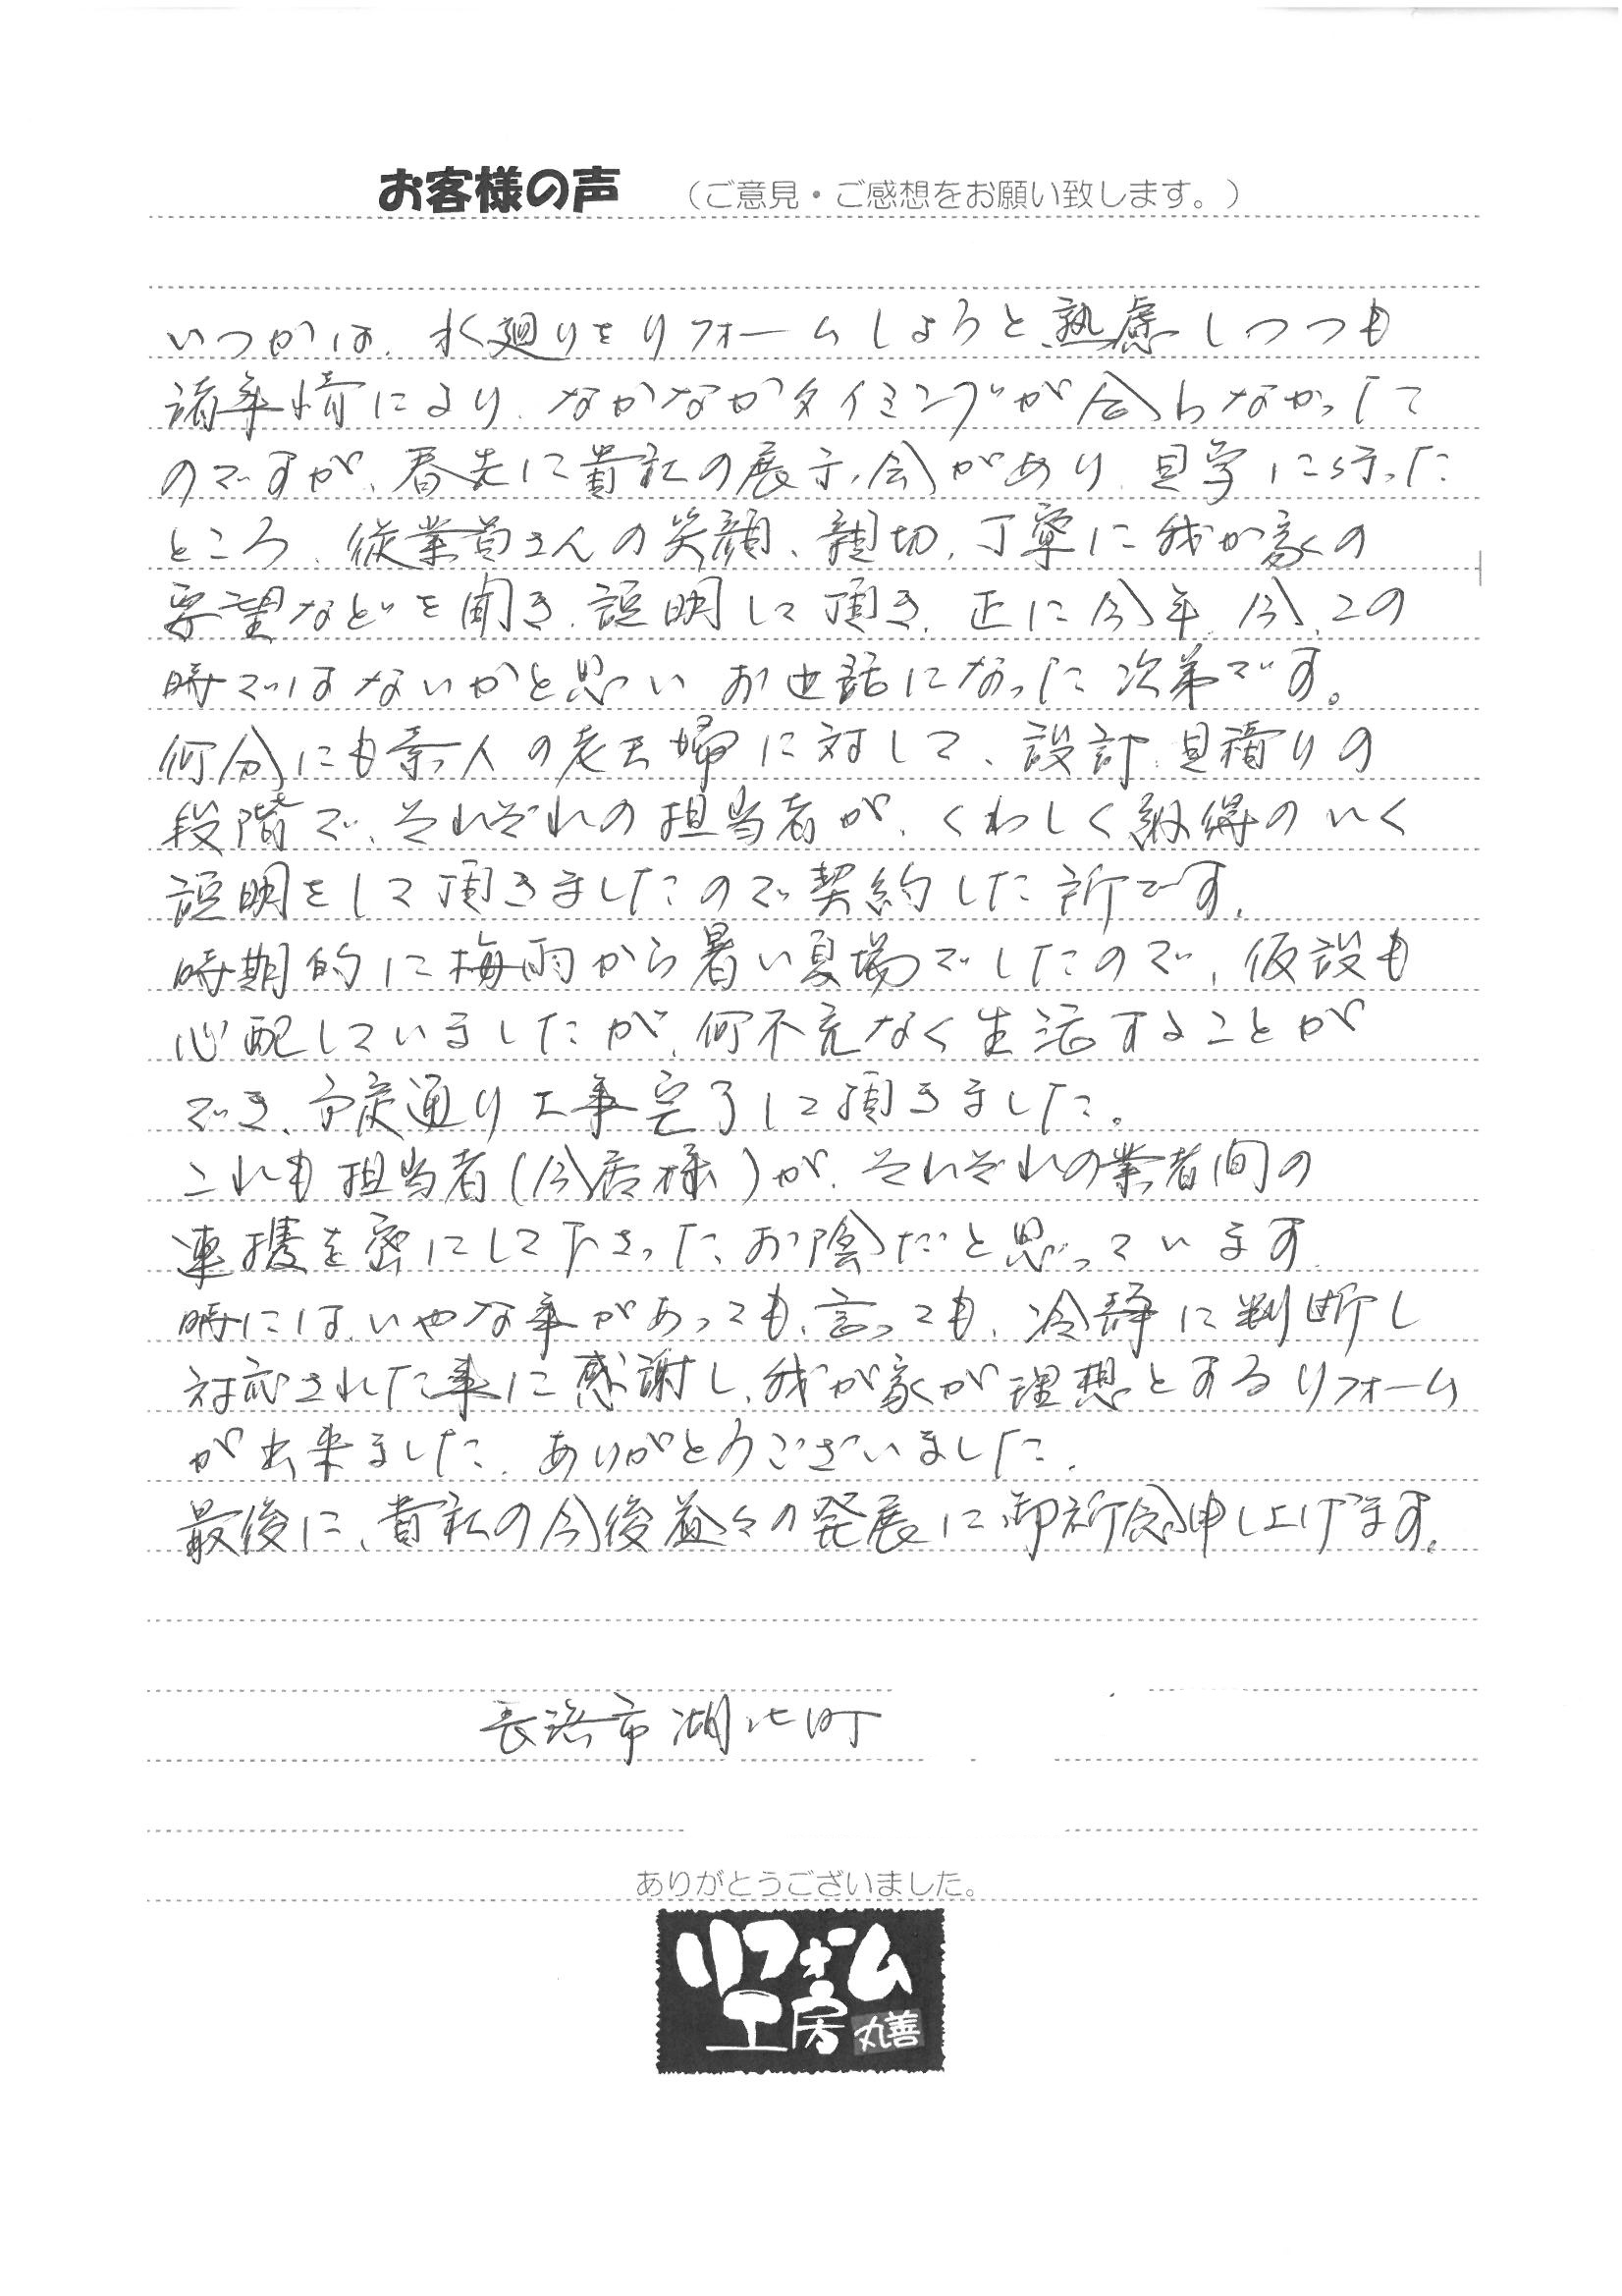 お客様の声 （ご意見・ご感想をお願い致します。）
いつかは、水廻りをリフォームしようと熟慮しつつも
諸事情により、なかなかタイミングが合わなかった
のですが、春先に貴社の展示会があり、見学に行った
ところ、従業員さんの笑顔、親切、丁寧に我が家の
要望などを聞き、説明して頂き、正に今年、今、この
時ではないかと思いお世話になった次第です。
何分にも素人の老夫婦に対して、設計、見積りの
段階で、それぞれの担当者が、くわしく納得のいく
説明をして頂きましたので契約した所です。
時期的に梅雨から暑い夏場でしたので、仮設も
心配していましたが、何不充なく生活することが
でき、予定通り工事完了して頂きました。
これも担当者(今居様)が、それぞれの業者間の
連携を密にして下さった、お陰だと思っています
時には、いやな事があっても、言っても、冷静に判断し
対応された事に感謝し、我が家が理想とするリフォーム
が出来ました。ありがとうございました。
最後に、貴社の今後益々の発展に御祈念申し上げます。
長浜市湖北町
ありがとうございました。
リフォーム
工房 丸善